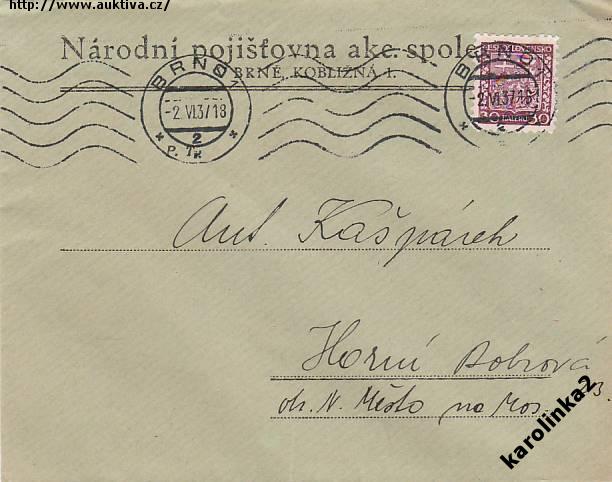 http://www.auktiva.cz/
Národní pojišťovna akc. spole
BRNĚ, KOBLIŽNÁ 1.
BRNO 1
-2.VI.37 18
2
* P. Tk *
ČESKOSLOVENSKO
30 HALÉŘŮ 30
BRNO 1
-2.VI.37-18
2
Ant. Kašpárek
Horní Bobrová
ok. N. Město na Mor.
karolinka2